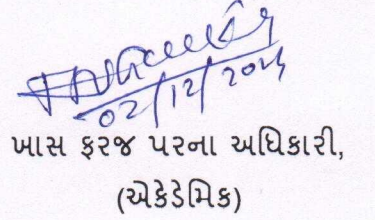 02/12/2024
ખાસ ફરજ પરના અધિકારી,
(એકેડેમિક)